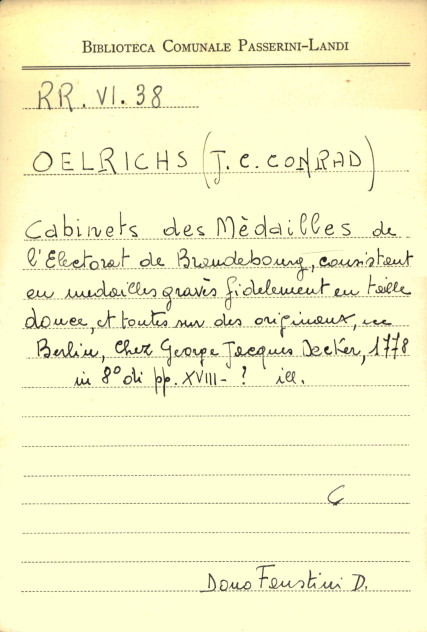 BIBLIOTECA COMUNALE PASSERINI-LANDI
RR. VI. 38
OELRICHS (J. C. CONRAD)
Cabinets des Mèdailles de
l'Electorat de Brandebourg, consistent
en medailles gravès fidelement en taille
douce, et toutes sur des originaux,
Berlin, Chez George Jacques Decker, 1778
in 8° di pp. XVIII- ? ill.
C
Dono Faustini D.